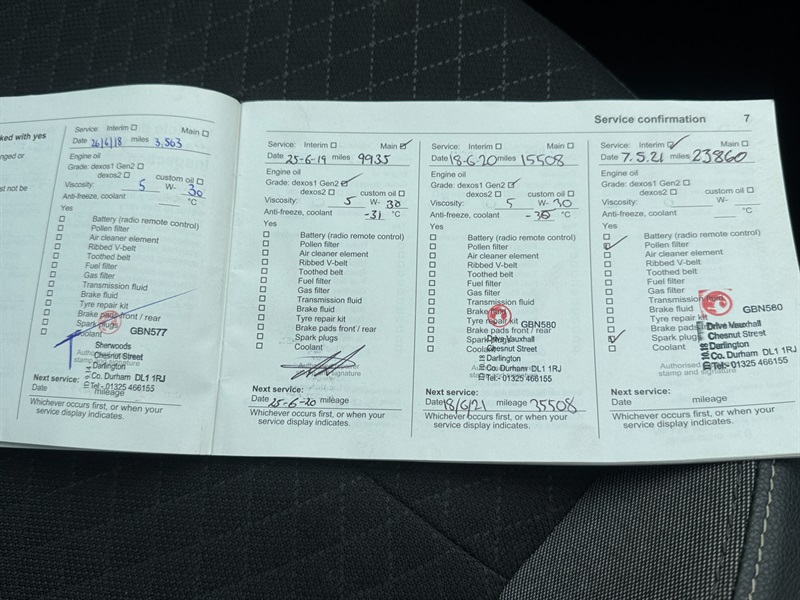 Service confirmation 7
ked with yes
nged or
st not be
Service: Interim Main
Date 26/6/18 miles 3,563
Engine oil
Grade: dexos1 Gen2
dexos2 custom oil
Viscosity: 5 W- 30
Anti-freeze, coolant °C
Yes
Battery (radio remote control)
Pollen filter
Air cleaner element
Ribbed V-belt
Toothed belt
Fuel filter
Gas filter
Transmission fluid
Brake fluid
Tyre repair kit
Brake pads front / rear
Spark plugs
Coolant
GBN577
Sherwoods
Chesnut Street
Darlington
Co. Durham DL1 1RJ
Tel:- 01325 466155
Next service:
Date mileage
Whichever occurs first, or when your
service display indicates.
Service: Interim Main
Date 25-6-19 miles 9935
Engine oil
Grade: dexos1 Gen2
dexos2 custom oil
Viscosity: 5 W- 30
Anti-freeze, coolant -31 °C
Yes
Battery (radio remote control)
Pollen filter
Air cleaner element
Ribbed V-belt
Toothed belt
Fuel filter
Gas filter
Transmission fluid
Brake fluid
Tyre repair kit
Brake pads front / rear
Spark plugs
Coolant
Next service:
Date 25-6-20 mileage
Whichever occurs first, or when your
service display indicates.
Service: Interim Main
Date 18-6-20 miles 15508
Engine oil
Grade: dexos1 Gen2
dexos2 custom oil
Viscosity: 5 W- 30
Anti-freeze, coolant °C
Yes
Battery (radio remote control)
Pollen filter
Air cleaner element
Ribbed V-belt
Toothed belt
Fuel filter
Gas filter
Transmission fluid
Brake fluid
Tyre repair kit
Brake pads front / rear
Spark plugs
Coolant
GBN580
Drive Vauxhall
Chesnut Street
Darlington
Co. Durham DL1 1RJ
Tel:- 01325 466155
Next service:
Date 18/6/21 mileage 35508
Whichever occurs first, or when your
service display indicates.
Service: Interim Main
Date 7.5.21 miles 23860
Engine oil
Grade: dexos1 Gen2
dexos2 custom oil
Viscosity: W-
Anti-freeze, coolant °C
Yes
Battery (radio remote control)
Pollen filter
Air cleaner element
Ribbed V-belt
Toothed belt
Fuel filter
Gas filter
Transmission fluid
Brake fluid
Tyre repair kit
Brake pads
Spark plugs
Coolant
GBN580
Drive Vauxhall
Chesnut Street
Darlington
Co. Durham DL1 1RJ
Tel:- 01325 466155
Authorised
stamp and signature
Next service:
Date mileage
Whichever occurs first, or when your
service display indicates.